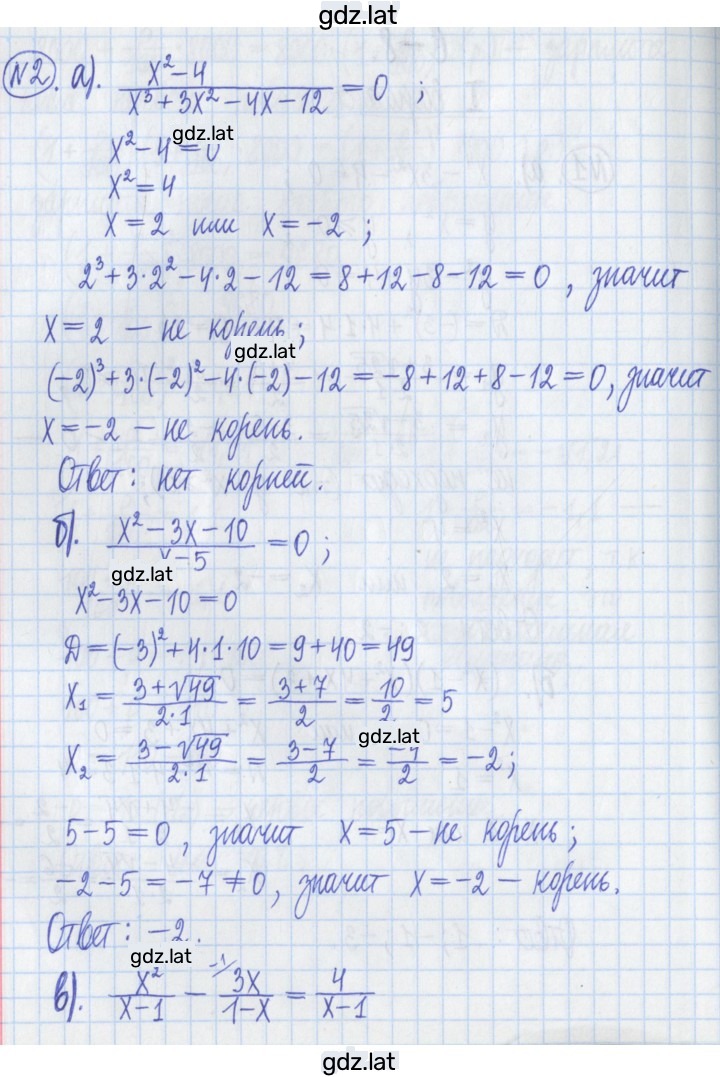 gdz.lat
№2. а). (x²-4)/(x³+3x²-4x-12) = 0 ;
gdz.lat
x²-4=0
x²=4
x=2 или x=-2 ;
2³+3·2²-4·2-12=8+12-8-12=0 , значит
x=2 – не корень;
gdz.lat
(-2)³+3·(-2)²-4·(-2)-12=-8+12+8-12=0, значит
x=-2 – не корень.
Ответ: нет корней.
б). (x²-3x-10)/(x-5) = 0 ;
gdz.lat
x²-3x-10=0
Д=(-3)²+4·1·10=9+40=49
x₁ = (3+√49)/(2·1) = (3+7)/2 = 10/2 = 5
gdz.lat
x₂ = (3-√49)/(2·1) = (3-7)/2 = -4/2 = -2 ;
5-5=0 , значит x=5 – не корень;
-2-5=-7≠0, значит x=-2 – корень.
Ответ: -2.
gdz.lat
в). x²/(x-1) - ⁻¹⁄ 3x/(1-x) = 4/(x-1)
gdz.lat